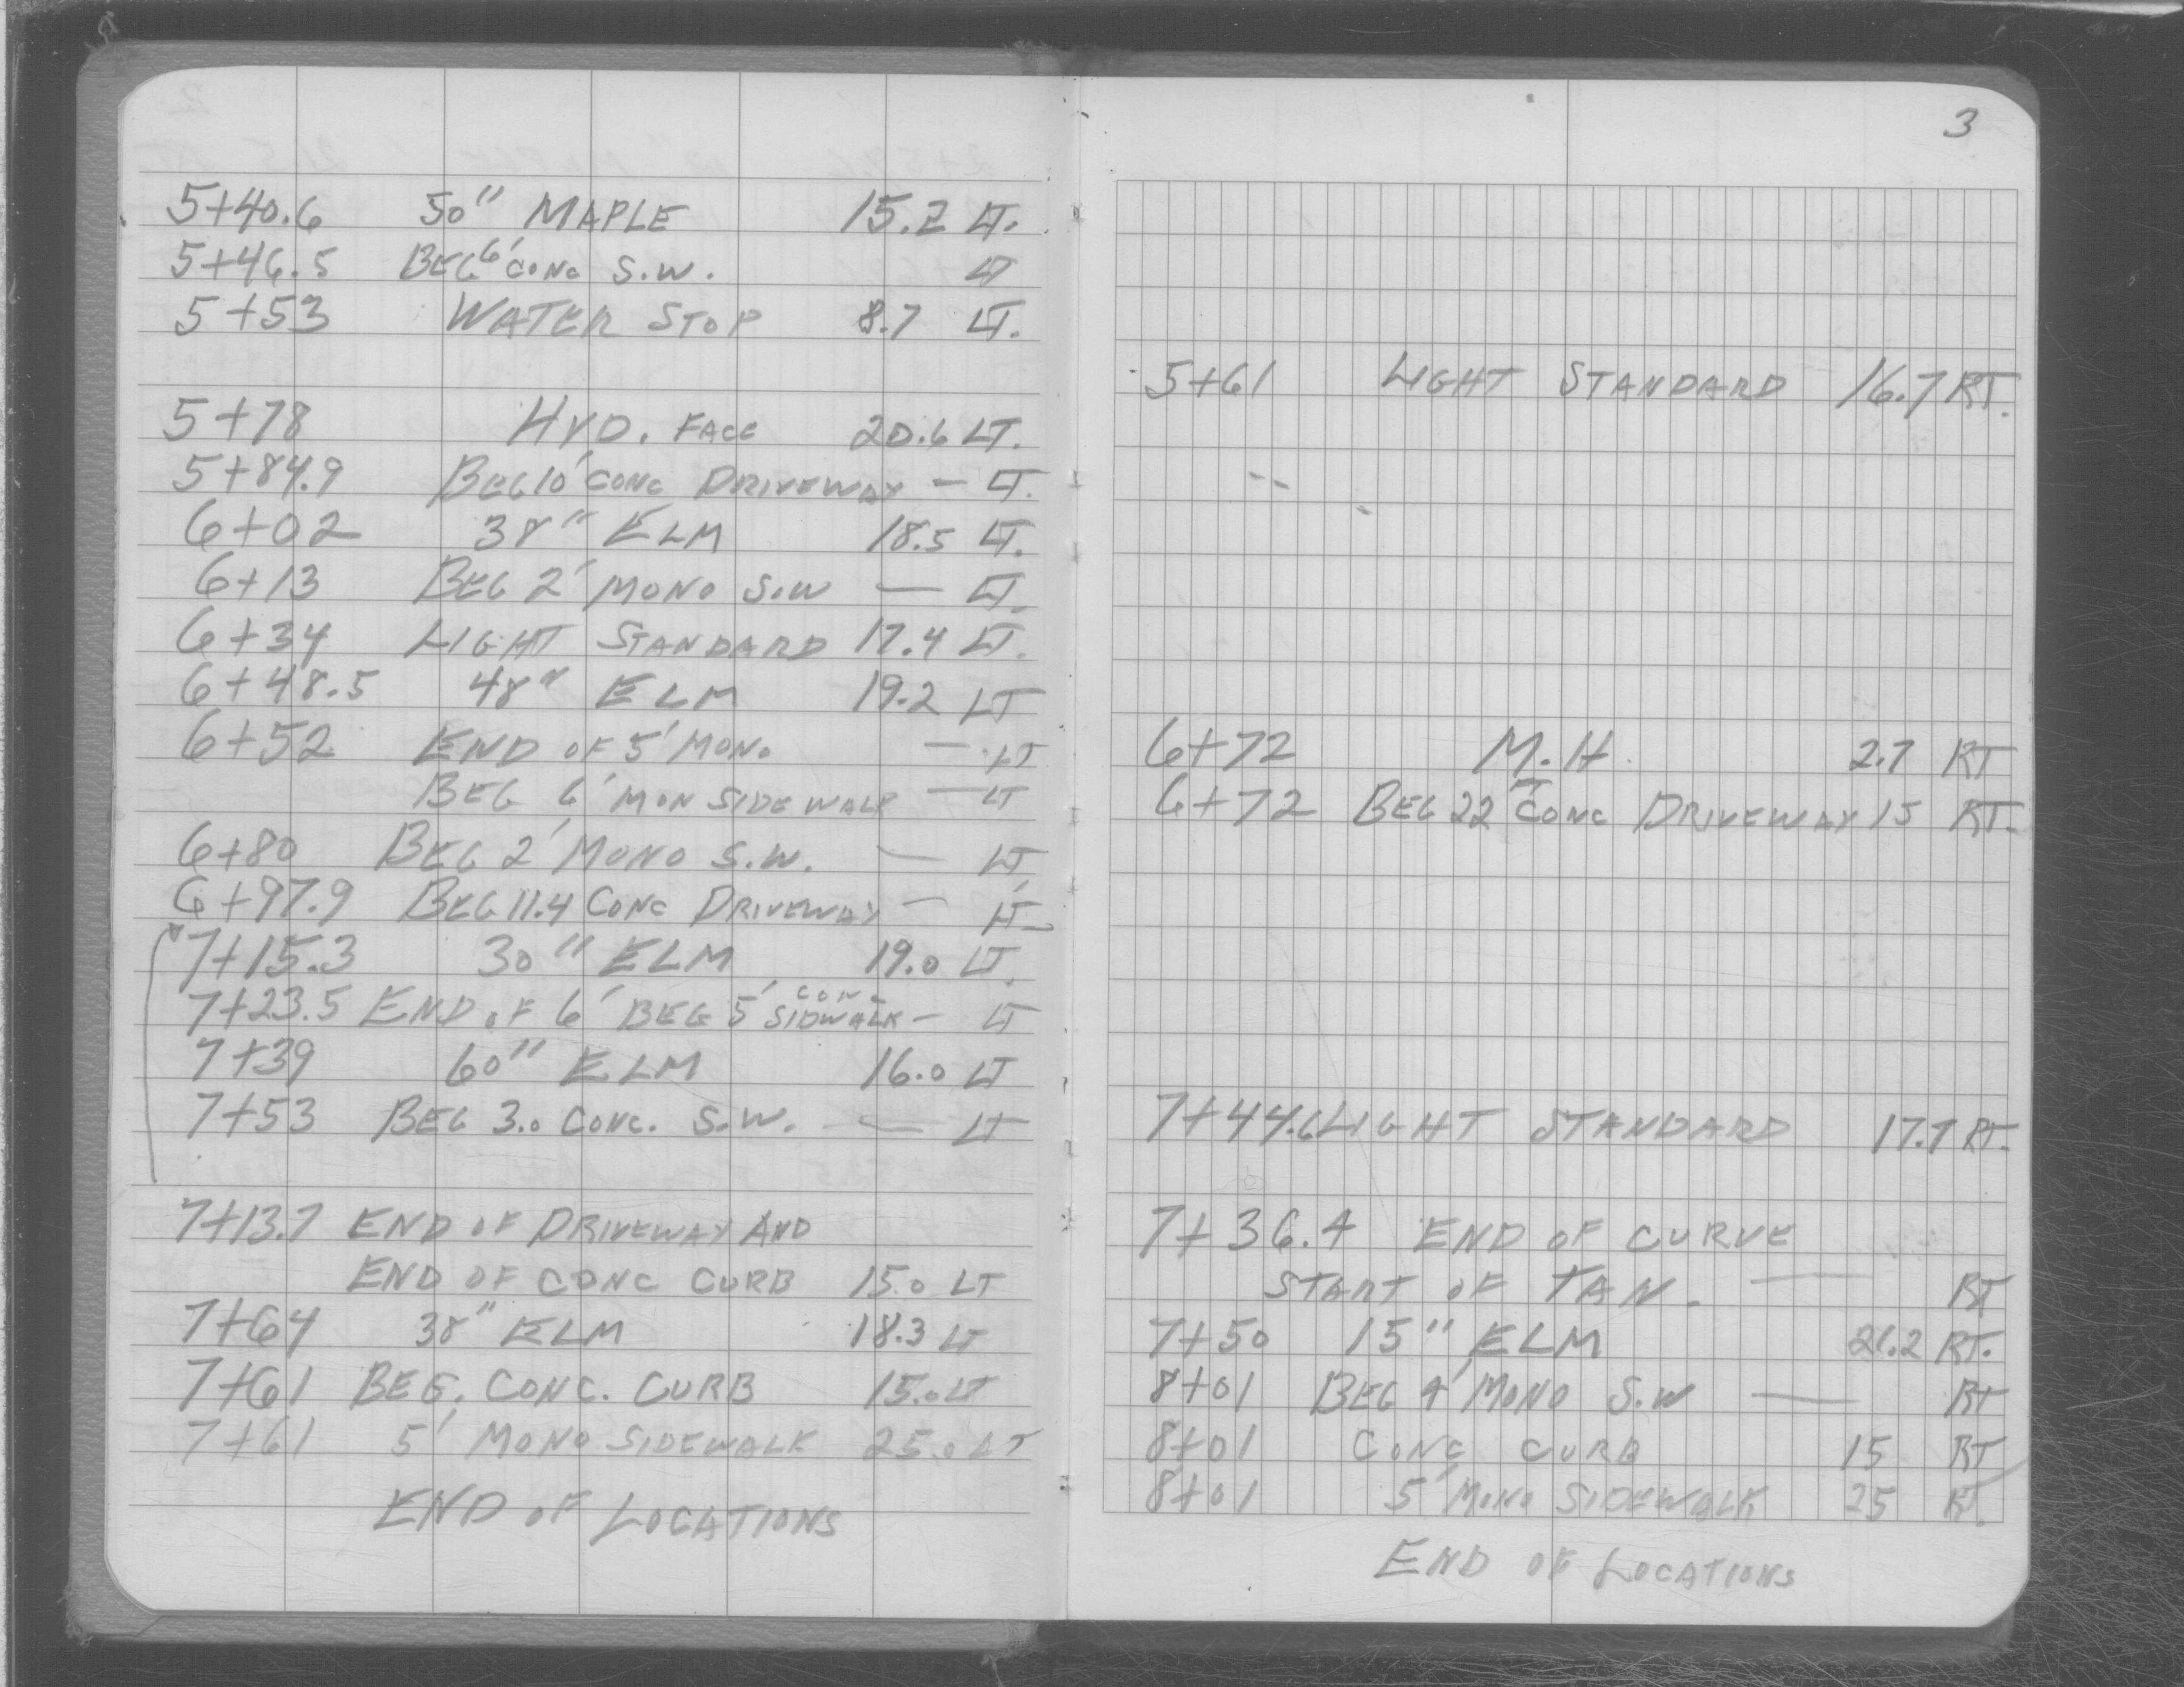 5+40.6 50" MAPLE 15.2 LT.
5+46.5 BEG 6' CONC S.W. LT
5+53 WATER STOP 8.7 LT.
5+78 HYD. FACE 20.6 LT.
5+84.9 BEG 10' CONC DRIVEWAY — LT.
6+02 38" ELM 18.5 LT.
6+13 BEG 2' MONO S.W — LT.
6+34 LIGHT STANDARD 17.4 LT.
6+48.5 48" ELM 19.2 LT
6+52 END OF 5' MONO — LT
BEG 6' MON SIDEWALK — LT
6+80 BEG 2' MONO S.W. — LT.
6+97.9 BEG 11.4 CONC DRIVEWAY — LT
7+15.3 30" ELM 19.0 LT.
7+23.5 END OF 6' BEG 5' CONC SIDWALK — LT
7+39 60" ELM 16.0 LT
7+53 BEG 3.0 CONC. S.W. — LT
7+13.7 END OF DRIVEWAY AND
END OF CONC CURB 15.0 LT
7+64 38" ELM 18.3 LT
7+61 BEG. CONC. CURB 15.0 LT
7+61 5' MONO SIDEWALK 25.0 LT
END OF LOCATIONS
3
5+61 LIGHT STANDARD 16.7 RT.
6+72 M.H. 2.7 RT
6+72 BEG 22' CONC DRIVEWAY 15 RT.
7+44.6 LIGHT STANDARD 17.7 RT.
7+36.4 END OF CURVE
START OF TAN. — RT
7+50 15" ELM RT.
8+01 BEG 4' MONO S.W — RT
8+01 CONC CURB 15 RT
8+01 5' MONO SIDEWALK 25 RT.
END OF LOCATIONS